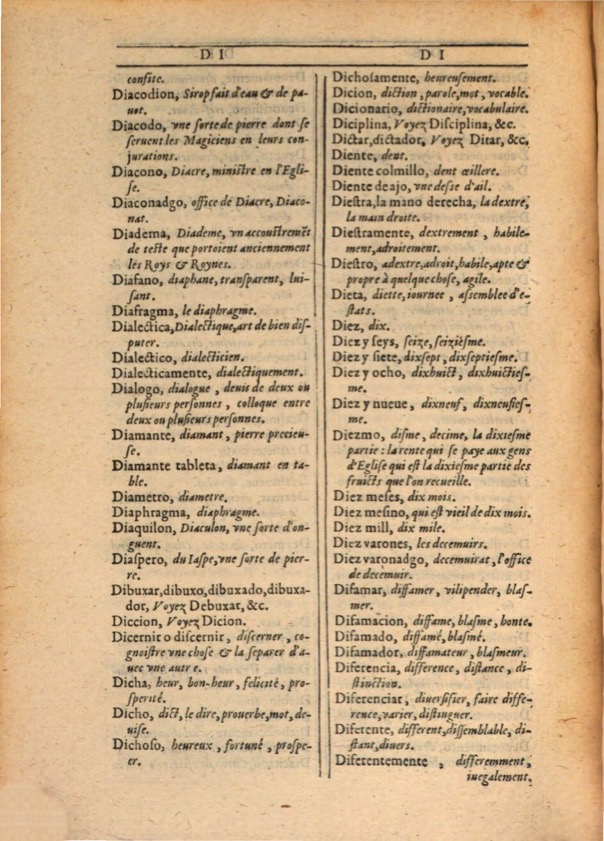 D I
confite.
Diacodion, Sirop fait d'eau & de pa-
uot.
Diacodo, vne sorte de pierre dont se
seruent les Magiciens en leurs con-
jurations.
Diacono, Diacre, ministre en l'Egli-
se.
Diaconadgo, office de Diacre, Diaco-
nat.
Diadema, Diademe, vn accoustremẽt
de teste que portoient anciennement
les Roys & Roynes.
Diafano, diaphane, transparent, lui-
sant.
Diafragma, le diaphragme.
Dialectica, Dialectique, art de bien dis-
puter.
Dialectico, dialecticien.
Dialecticamente, dialectiquement.
Dialogo, dialogue, deuis de deux ou
plusieurs personnes, colloque entre
deux ou plusieurs personnes.
Diamante, diamant, pierre precieu-
se.
Diamante tableta, diamant en ta-
ble.
Diametro, diametre.
Diaphragma, diaphragme.
Diaquilon, Diaculon, vne sorte d'on-
guent.
Diaspero, du Iaspe, vne sorte de pier-
re.
Dibuxar, dibuxo, dibuxado, dibuxa-
dor, Voyez Debuxar, &c.
Diccion, Voyez Dicion.
Dicernir o discernir, discerner, co-
gnoistre vne chose & la separer d'a-
uec vne autre.
Dicha, heur, bon-heur, felicité, pro-
sperité.
Dicho, dict, le dire, prouerbe, mot, de-
uise.
Dichoso, heureux, fortuné, prospe-
er.
D I
Dichosamente, heureusement.
Dicion, diction, parole, mot, vocable.
Dicionario, dictionaire, vocabulaire.
Diciplina, Voyez Disciplina, &c.
Dictar, dictador, Voyez Ditar, &c,
Diente, dent.
Diente colmillo, dent œillere.
Diente de ajo, vne desse d'ail.
Diestra, la mano derecha, la dextre,
la main droite.
Diestramente, dextrement, habile-
ment, adroitement.
Diestro, adextre, adroit, habile, apte &
propre à quelque chose, agile.
Dieta, diette, iournee, assemblee d'e-
stats.
Diez, dix.
Diez y seys, seize, seiziesme.
Diez y siete, dixsept, dixseptiesme.
Diez y ocho, dixhuict, dixhuicties-
me.
Diez y nueue, dixneuf, dixneufies-
me.
Diezmo, disme, decime, la dixiesme
partie: la rente qui se paye aux gens
d'Eglise qui est la dixiesme partie des
fruicts que l'on recueille.
Diez meses, dix mois.
Diez mesino, qui est vieil de dix mois.
Diez mill, dix mile.
Diez varones, les decemuirs.
Diez varonadgo, decemuirat, l'office
de decemuir.
Difamar, diffamer, vilipender, blas-
mer.
Difamacion, diffame, blasme, honte.
Difamado, diffamé, blasmé.
Difamador, diffamateur, blasmeur.
Diferencia, difference, distance, di-
stinction.
Diferenciar, diuersifier, faire diffe-
rence, varier, distinguer.
Diferente, different, dissemblable, di-
stant, diuers.
Diferentemente, differemment,
inegalement.